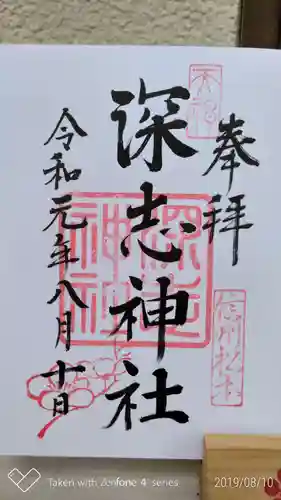 奉拝
天神
信州松本
深志神社
深志神社
令和元年八月十日
Taken with Zenfone 4 series
2019/08/10